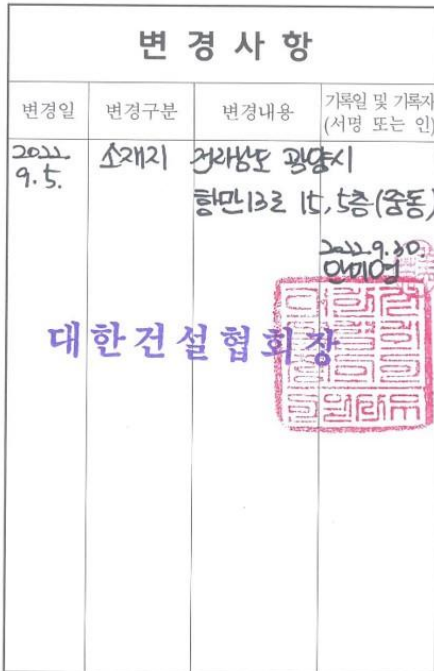 변경사항
변경일 변경구분 변경내용 기록일 및 기록자
(서명 또는 인)
2022. 소재지 전라남도 광양시
9.5.
항만13로 15, 5층(중동)
2022.9.30.
대한건설협회장